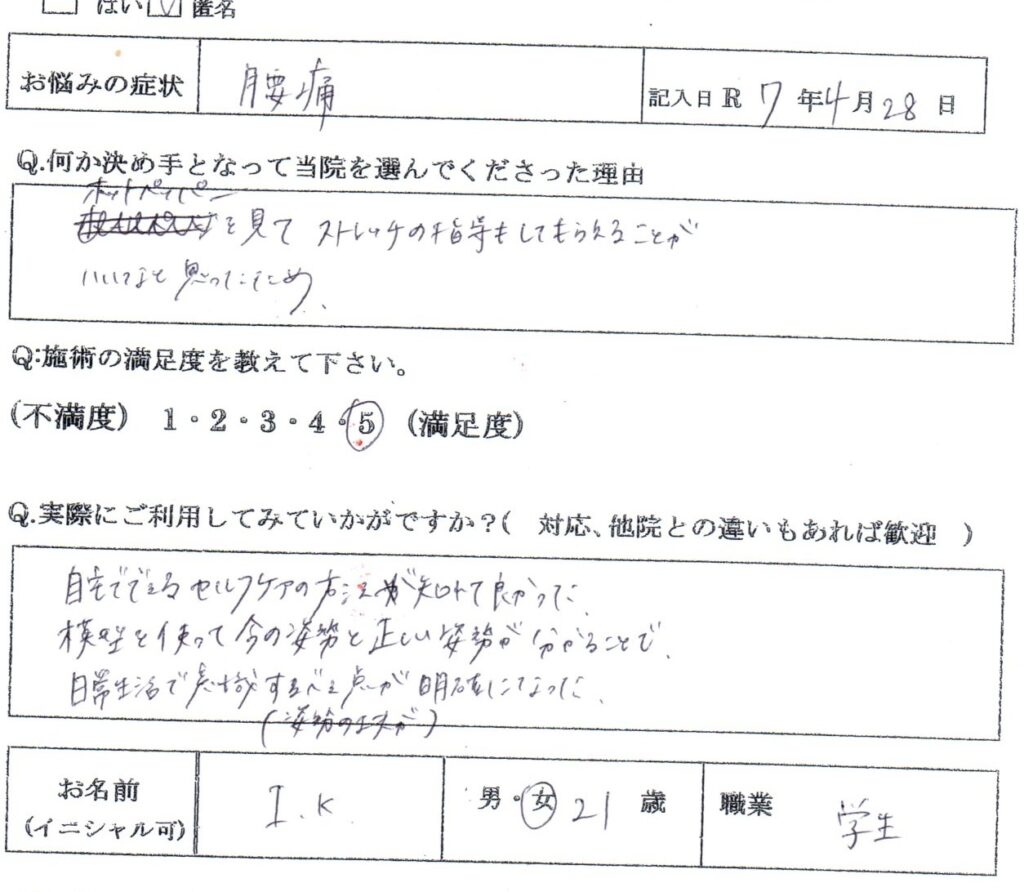 はい 匿名
お悩みの症状 腰痛 記入日 R 7 年 4 月 28 日
Q.何か決め手となって当院を選んでくださった理由
ホットペッパー
を見て ストレッチの指導もしてもらえることが
いいなと思ったため、
Q:施術の満足度を教えて下さい。
(不満度) 1・2・3・4・5 (満足度)
Q.実際にご利用してみていかがですか?( 対応、他院との違いもあれば歓迎 )
自宅でできるセルフケアの方法が知れて良かった、
模型を使って今の姿勢と正しい姿勢が分かることで、
日常生活で意識するべき点が明確になった、
お名前 I.K 男・女 21 歳 職業 学生
(イニシャル可)